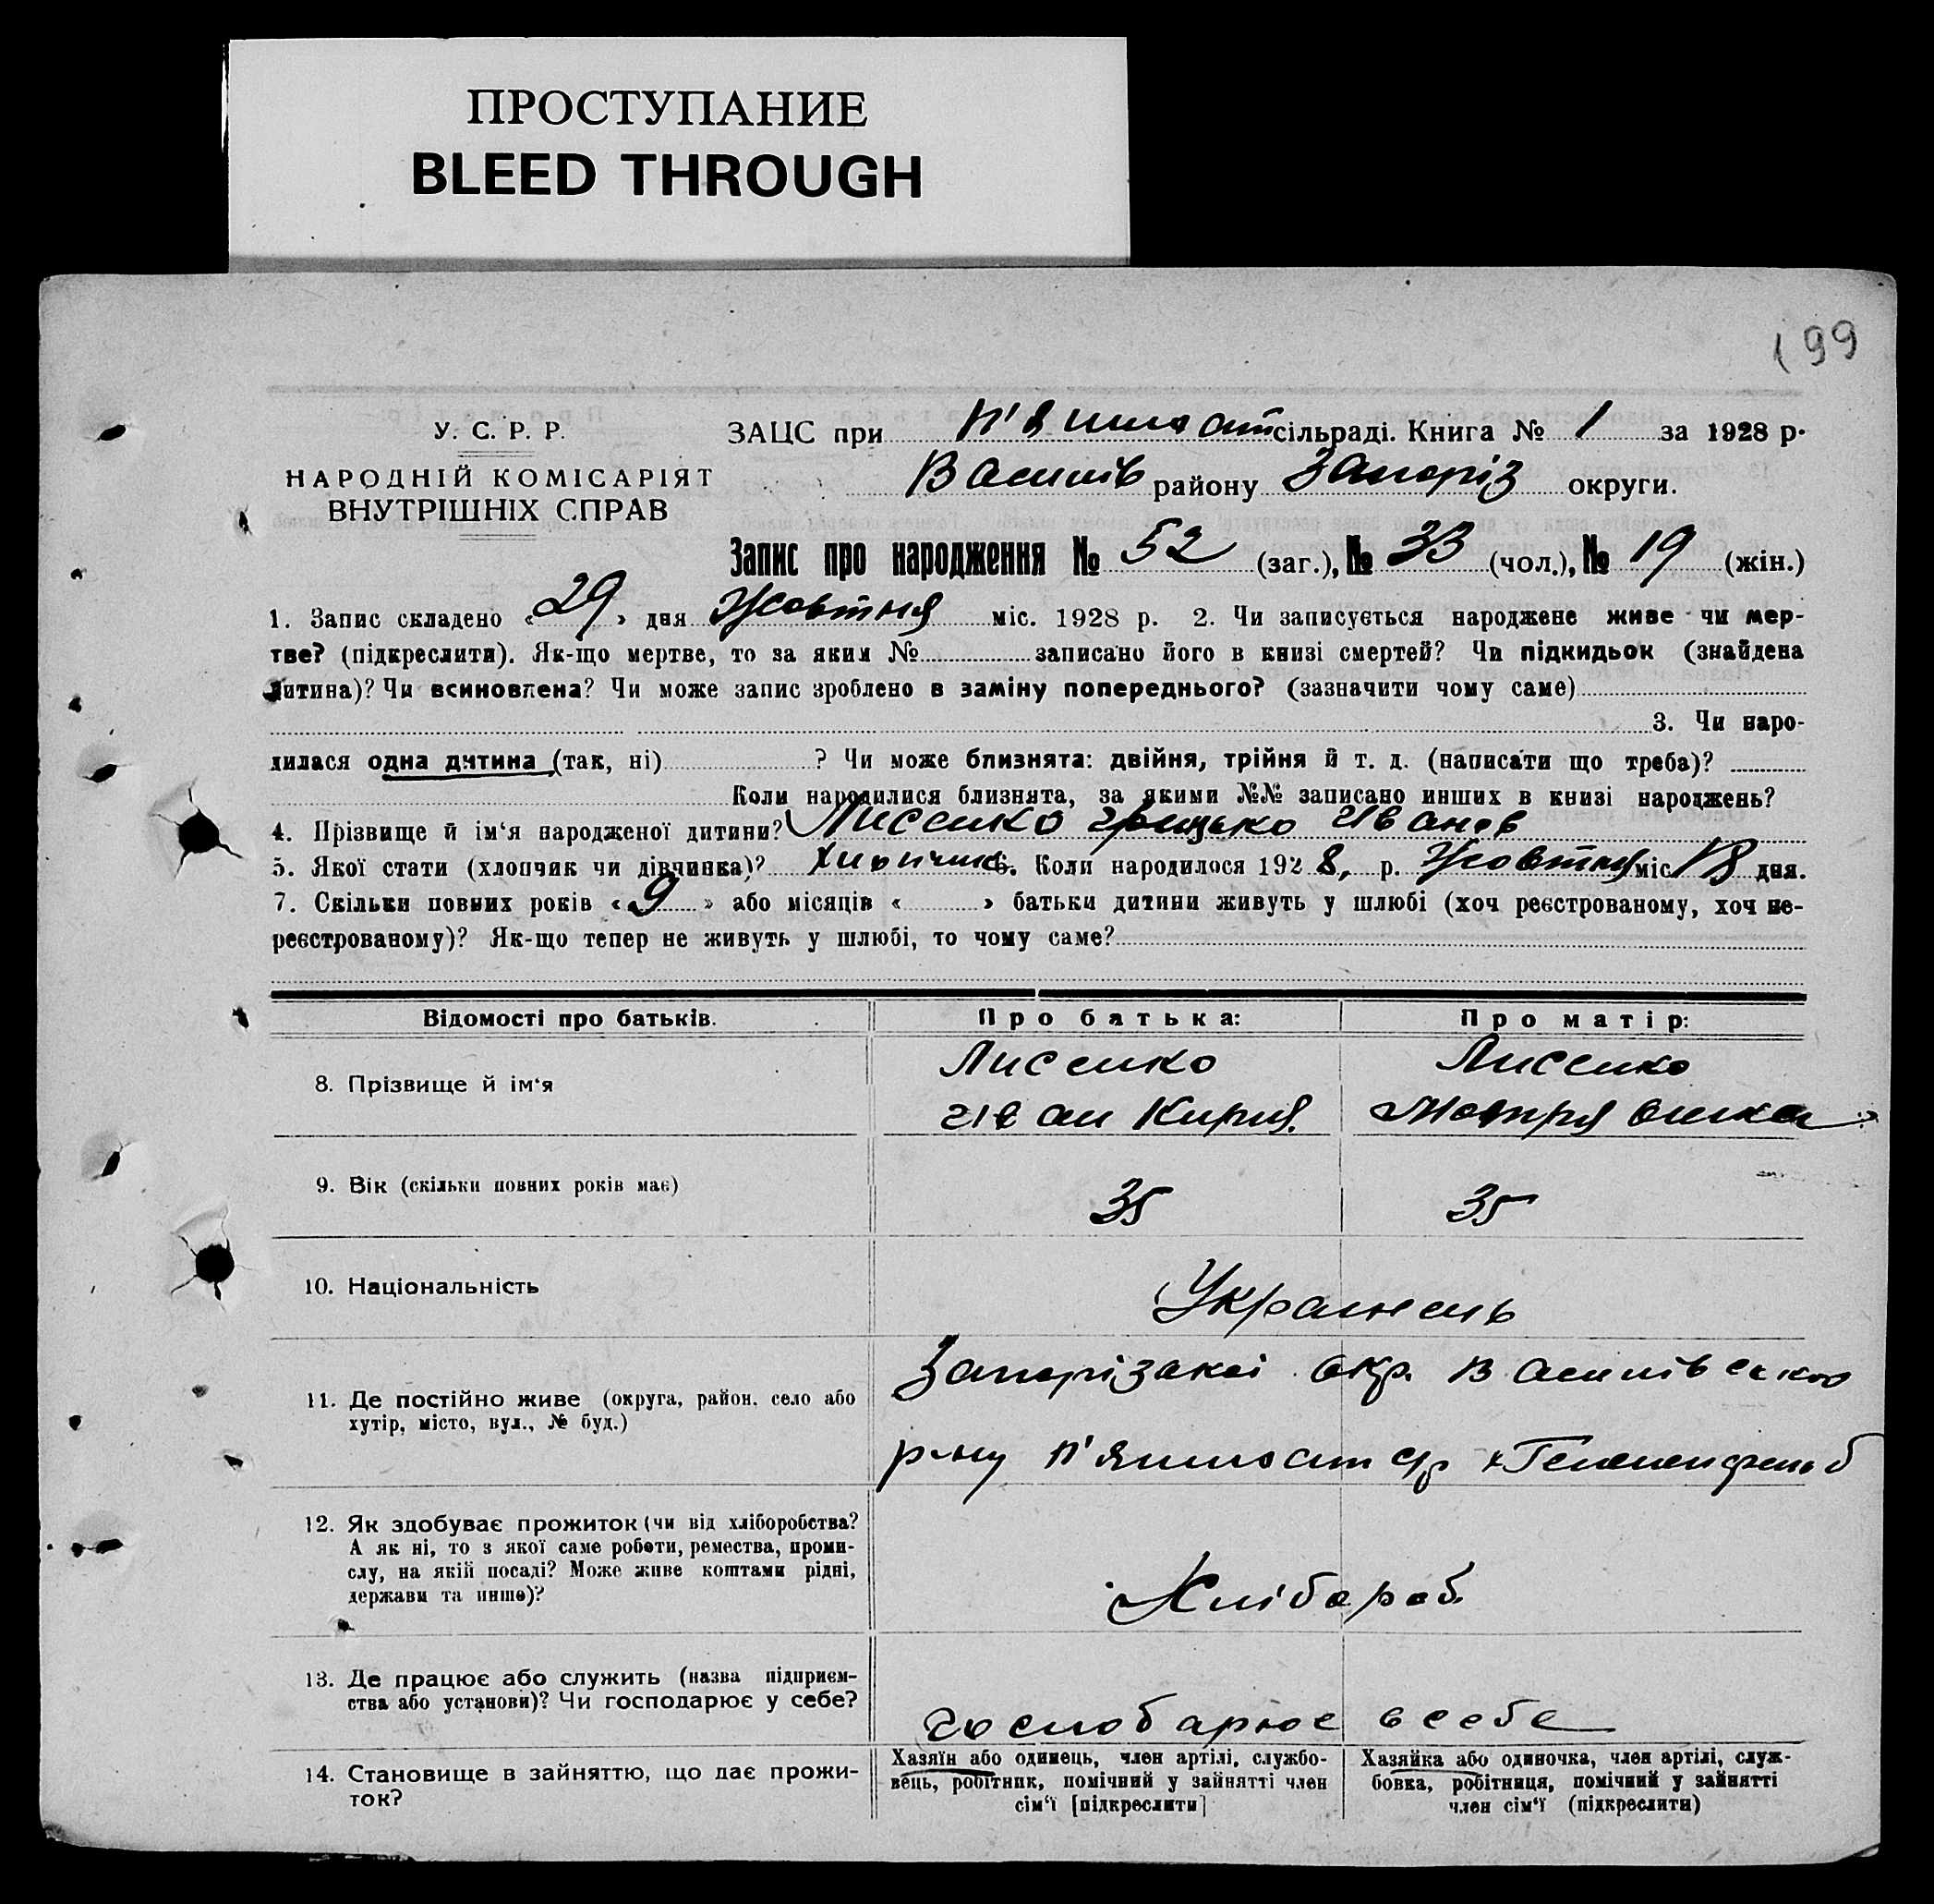 ПРОСТУПАНИЕ
BLEED THROUGH
199
У. С. Р. Р.
НАРОДНІЙ КОМІСАРІЯТ
ВНУТРІШНІХ СПРАВ
ЗАЦС при сільраді. Книга № 1 за 1928 р.
Василів району Запоріз округи.
Запис про народження № 52 (заг.), № 33 (чол.), № 19 (жін.)
1. Запис складено «29» дня Жовтня міс. 1928 р. 2. Чи записується народжене живе чи мер-
тве? (підкреслити). Як-що мертве, то за яким № записано його в книзі смертей? Чи підкидьок (знайдена
дитина)? Чи всиновлена? Чи може запис зроблено в заміну попереднього? (зазначити чому саме)
3. Чи наро-
дилася одна дитина (так, ні) ? Чи може близнята: двійня, трійня й т. д. (написати що треба)?
Коли народилися близнята, за якими №№ записано инших в книзі народжень?
4. Прізвище й ім'я народженої дитини? Лисенко Грицько Іванов
5. Якої стати (хлопчик чи дівчинка)? Хлопчик 6. Коли народилося 1928, р. Жовтня міс 18 дня.
7. Скільки повних років «9» або місяців « » батьки дитини живуть у шлюбі (хоч реєстрованому, хоч не-
реєстрованому)? Як-що тепер не живуть у шлюбі, то чому саме?
Відомості про батьків. Про батька: Про матір:
8. Прізвище й ім'я
Лисенко
Іван Кирил.
Лисенко
Мотря
9. Вік (скільки повних років має) 35 35
10. Національність Українець
11. Де постійно живе (округа, район, село або
хутір, місто, вул., № буд.)
Запорізької окр. Василівсько
р-ну п'ятихат с/р
12. Як здобуває прожиток (чи від хліборобства?
А як ні, то з якої саме роботи, ремества, проми-
слу, на якій посаді? Може живе коштами рідні,
держави та инше)?
Хлібороб.
13. Де працює або служить (назва підприєм-
ства або установи)? Чи господарює у себе?
господарює в себе
14. Становище в зайняттю, що дає прожи-
ток?
Хазяїн або одинець, член артілі, службо-
вець, робітник, помічний у зайнятті член
сім'ї [підкреслити]
Хазяйка або одиночка, член артілі, служ-
бовка, робітниця, помічний у зайнятті
член сім'ї (підкреслити)